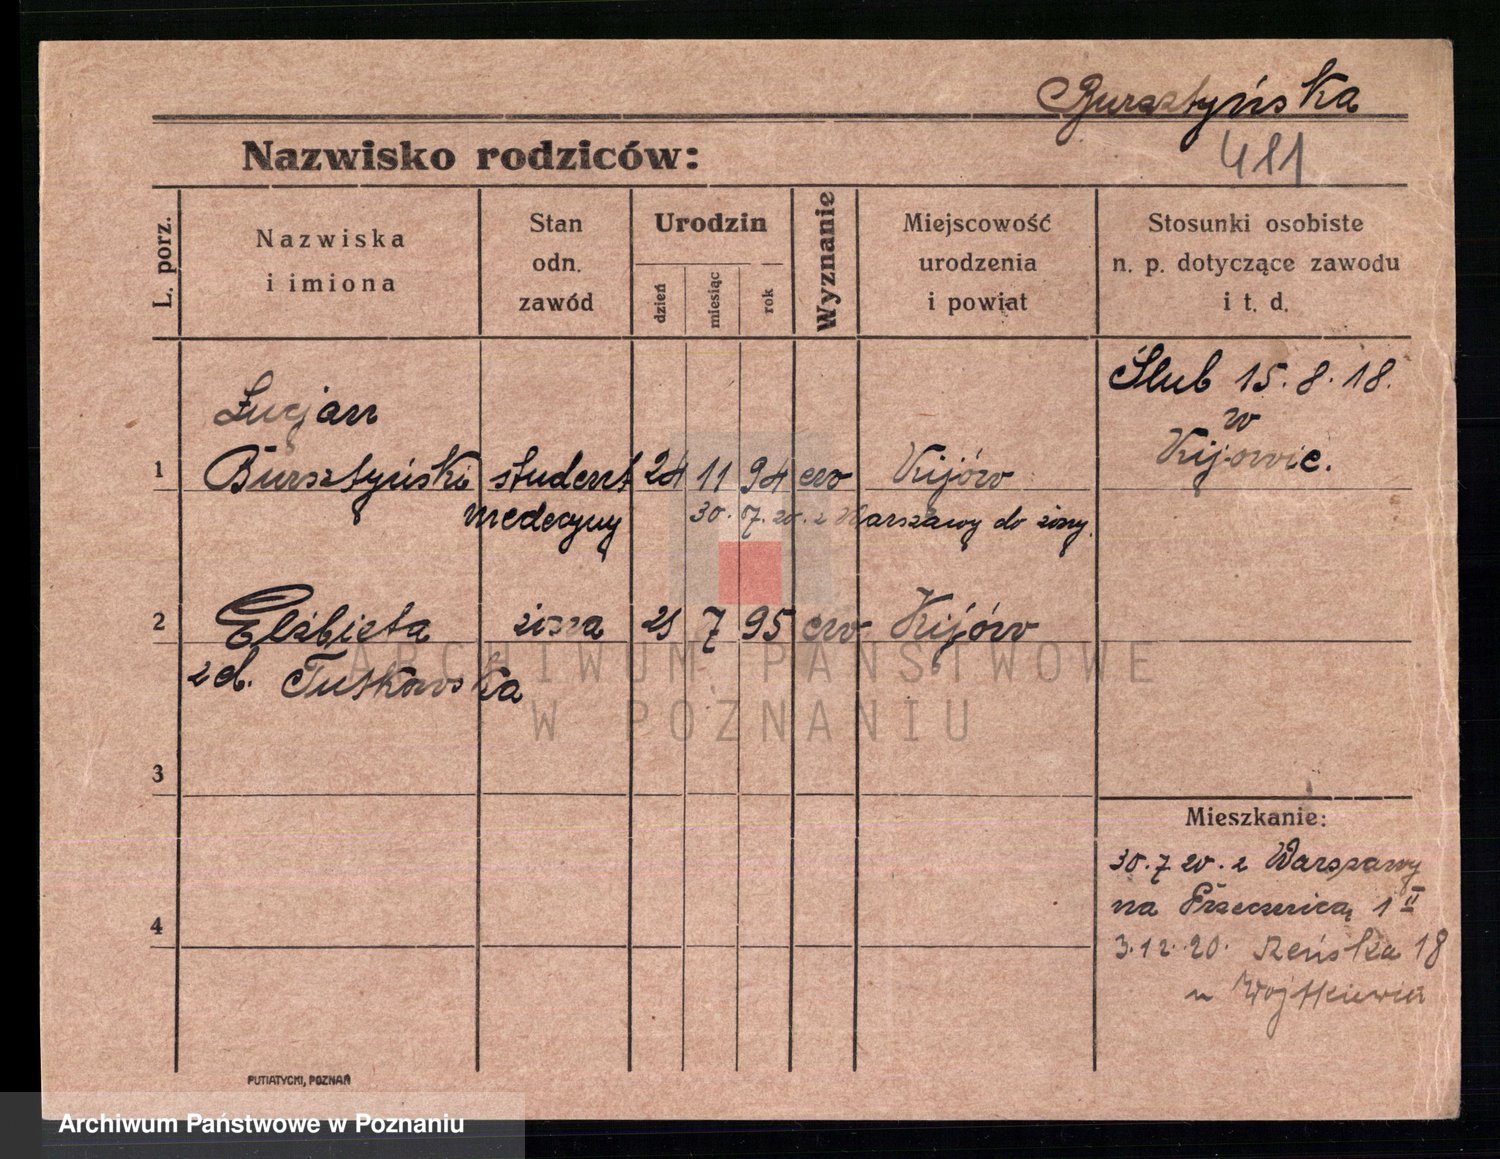 Bursztyńska
Nazwisko rodziców:
411
L. porz.
Nazwiska
i imiona
Stan
odn.
zawód
Urodzin
dzień
miesiąc
rok
Wyznanie
Miejscowość
urodzenia
i powiat
Stosunki osobiste
n. p. dotyczące zawodu
i t. d.
Ślub 15.8.18.
w
Kijowie.
Lucjan
1 Bursztyński student 24 11 94 ew Kijów
medecyny 30.7.20. z Warszawy do żony.
2 Elżbieta żona 21 7 95 ew Kijów
zd. Tutkowska
ARCHIWUM PAŃSTWOWE
W POZNANIU
3
Mieszkanie:
30.7 20. z Warszawy
na Przecznicą 1 II
4
3.12.20. 18
u Wojtkiewicz
PUTIATYCKI, POZNAŃ
Archiwum Państwowe w Poznaniu